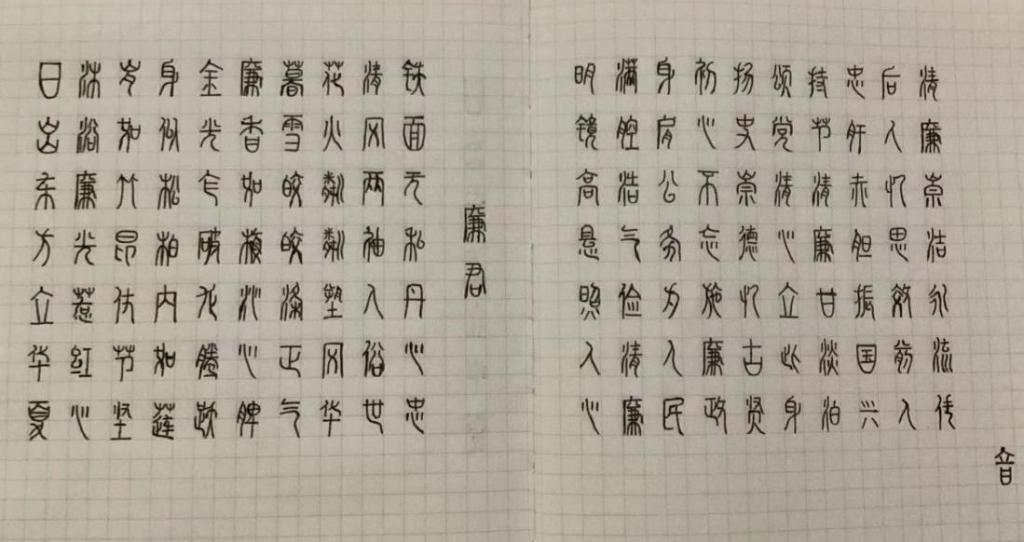 音
清廉崇洁永流传
后人忆思效前人
忠肝赤胆振国兴
持节清廉甘淡泊
颂党清心立此身
扬史崇德忆古贤
初心不忘施廉政
身肩公务为人民
满腔浩气俭清廉
明镜高悬照人心
廉君
铁面无私丹心忠
清风两袖入俗世
花火粼粼塑风华
暮雪皎皎涤正气
廉香如沁心脾
金光乍破腾
身似松柏内如莲
岁如竹昂仿节坚
沐浴廉光惹红心
日出东方立华夏